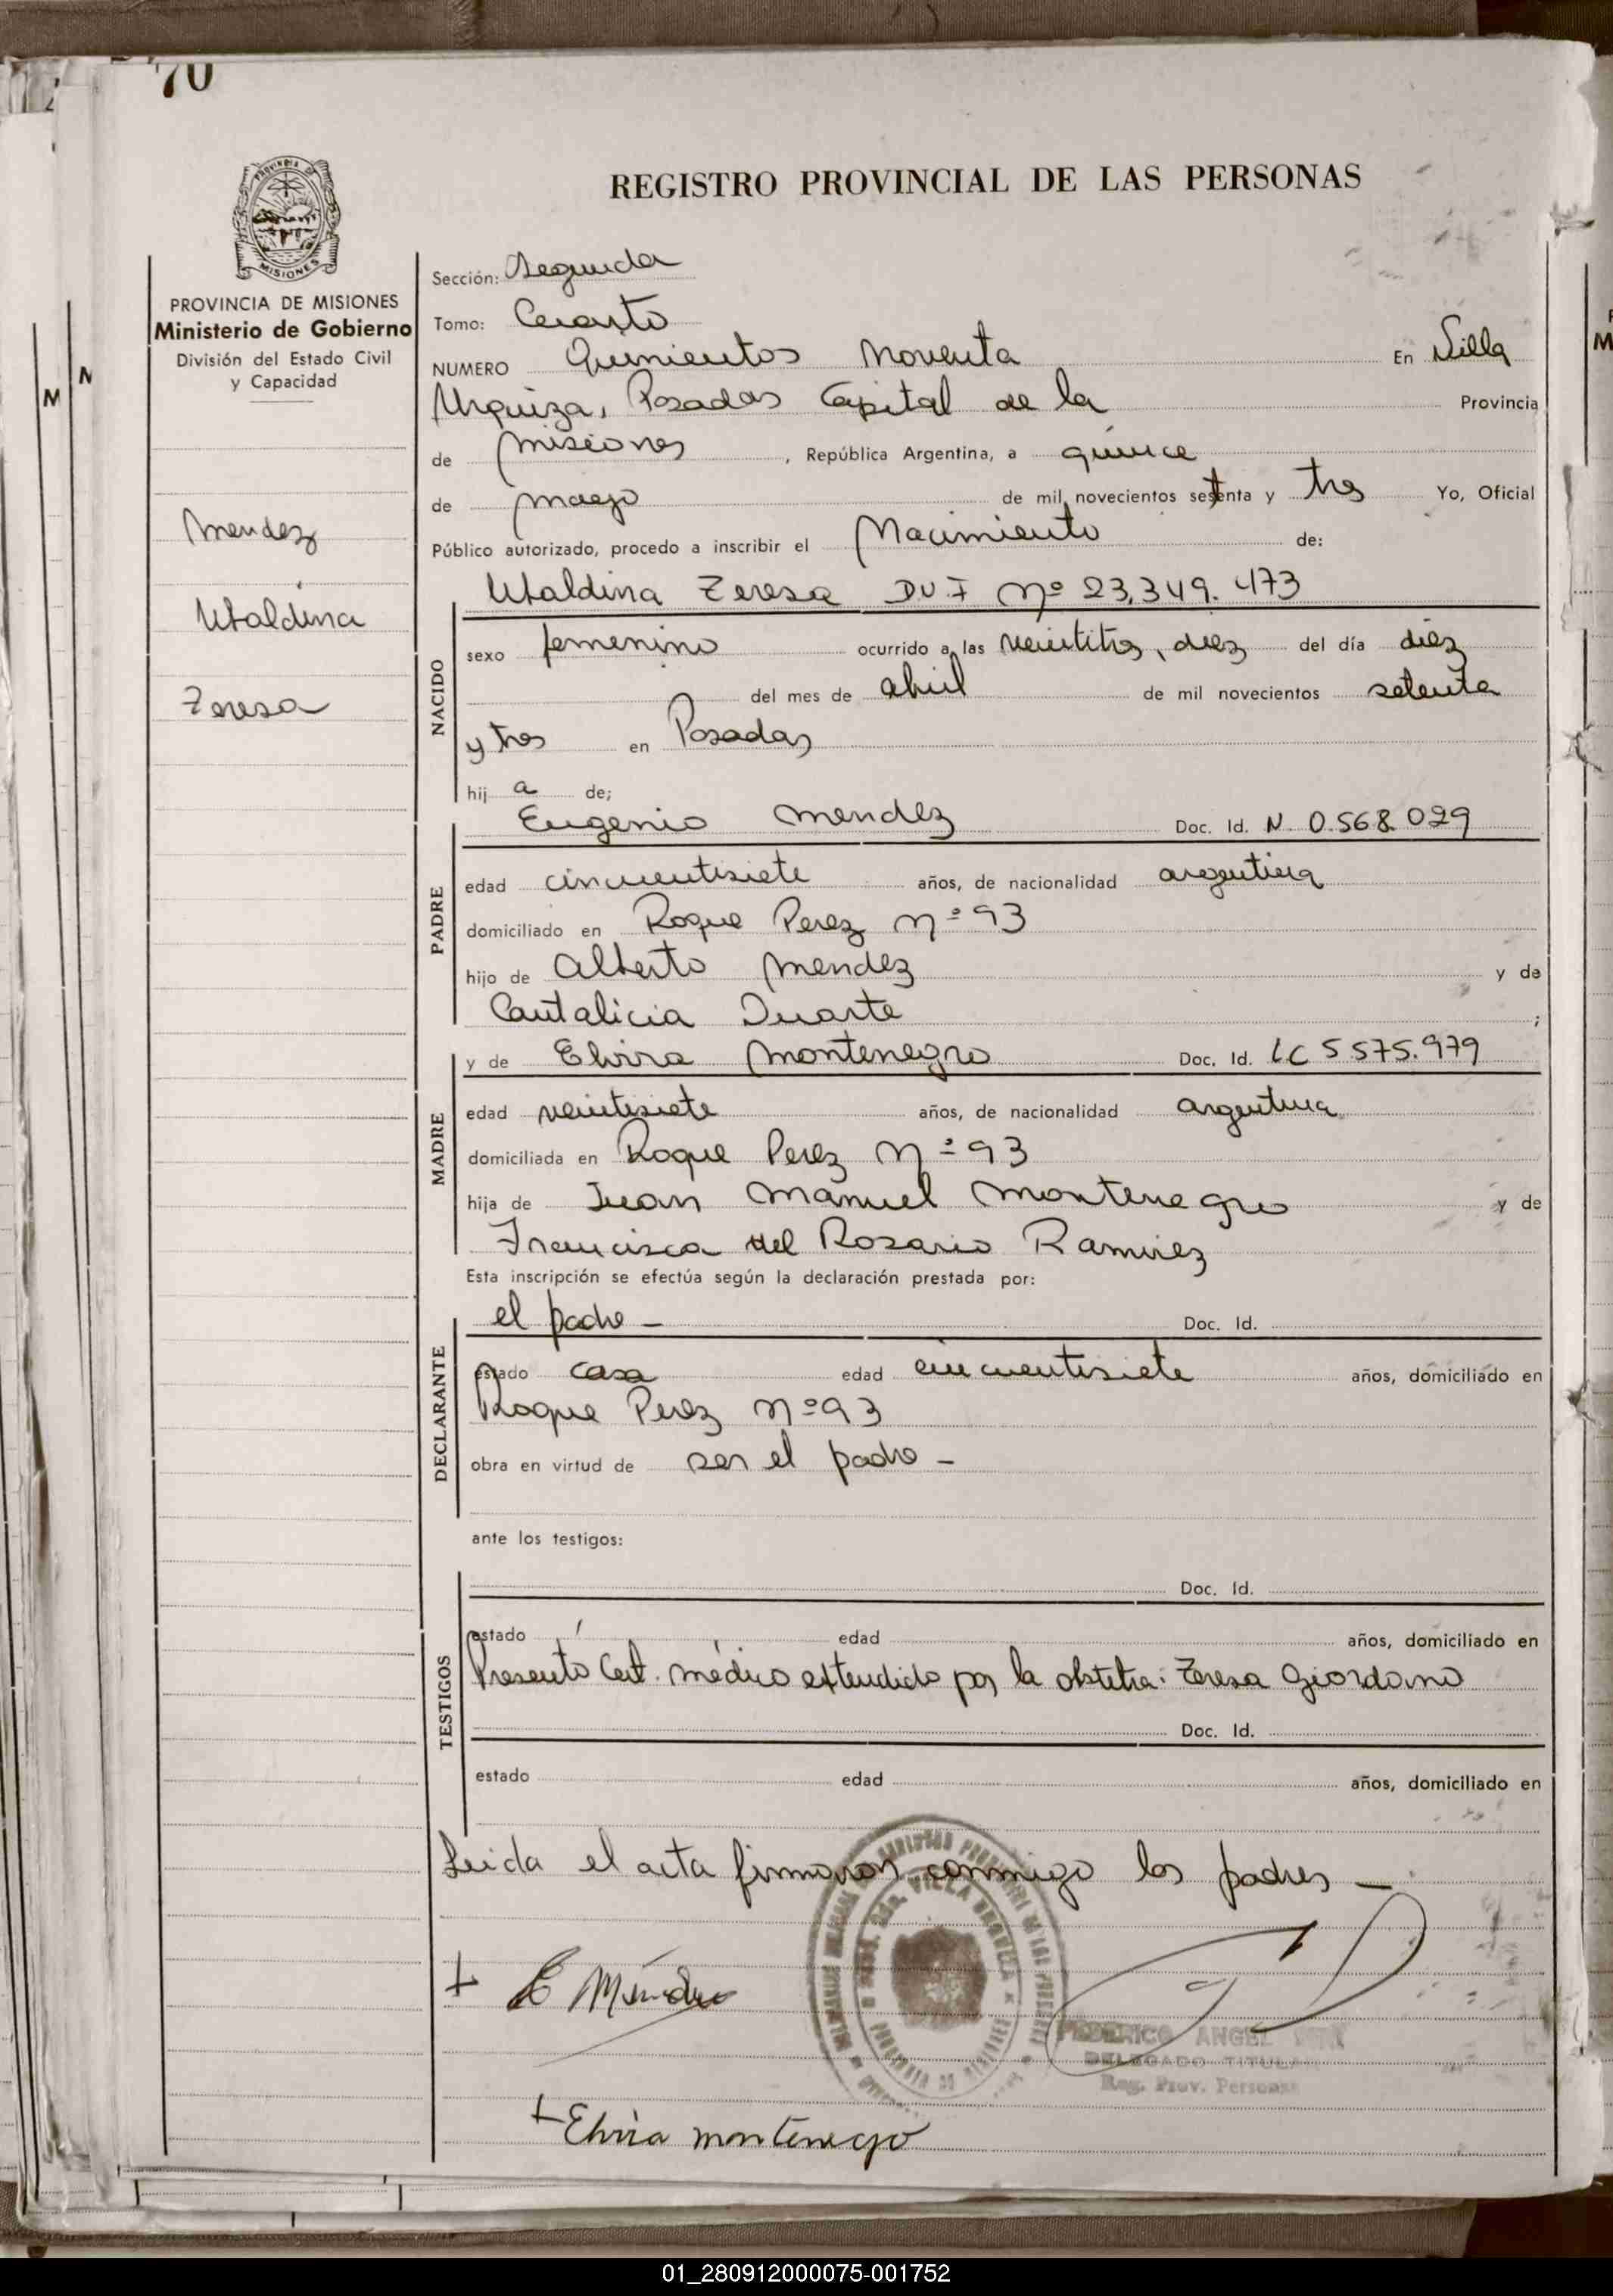 70
REGISTRO PROVINCIAL DE LAS PERSONAS
MISIONES
PROVINCIA DE MISIONES
Ministerio de Gobierno
División del Estado Civil
y Capacidad
Mendez
Ubaldina
Teresa
Sección: Segunda
Tomo: Cuarto
NUMERO Quinientos Noventa En Villa
Urquiza, Posadas Capital de la Provincia
de Misiones, República Argentina, a quince
de mayo de mil novecientos setenta y tres Yo, Oficial
Público autorizado, procedo a inscribir el Nacimiento de:
Ubaldina Teresa DU.I Nº 23.349.473
NACIDO
sexo femenino ocurrido a las veintitres, diez del día diez
del mes de abril de mil novecientos setenta
y tres en Posadas
hij a de;
Eugenio Mendez Doc. Id. N 0.568.029
PADRE
edad cincuentisiete años, de nacionalidad argentina
domiciliado en Roque Perez nº 93
hijo de Alberto Mendez y de
Cantalicia Duarte ;
y de Elvira Montenegro Doc. Id. LC 5575.979
MADRE
edad veintisiete años, de nacionalidad argentina
domiciliada en Roque Perez Nº 93
hija de Juan Manuel Montenegro y de
Francisca del Rosario Ramirez
Esta inscripción se efectúa según la declaración prestada por:
el padre - Doc. Id.
DECLARANTE
estado casa edad cincuentisiete años, domiciliado en
Roque Perez nº 93
obra en virtud de ser el padre -
ante los testigos:
Doc. Id.
TESTIGOS
estado edad años, domiciliado en
Presentó Cert. médico extendido por la obstetra: Teresa Giordano
Doc. Id.
estado edad años, domiciliado en
Leida el acta firmaron conmigo los padres -
E Méndez
FEDERICO ANGEL
DELEGADO TITULAR
Reg. Prov. Personas
VILLA URQUIZA
Elvira montenegro
01_280912000075-001752